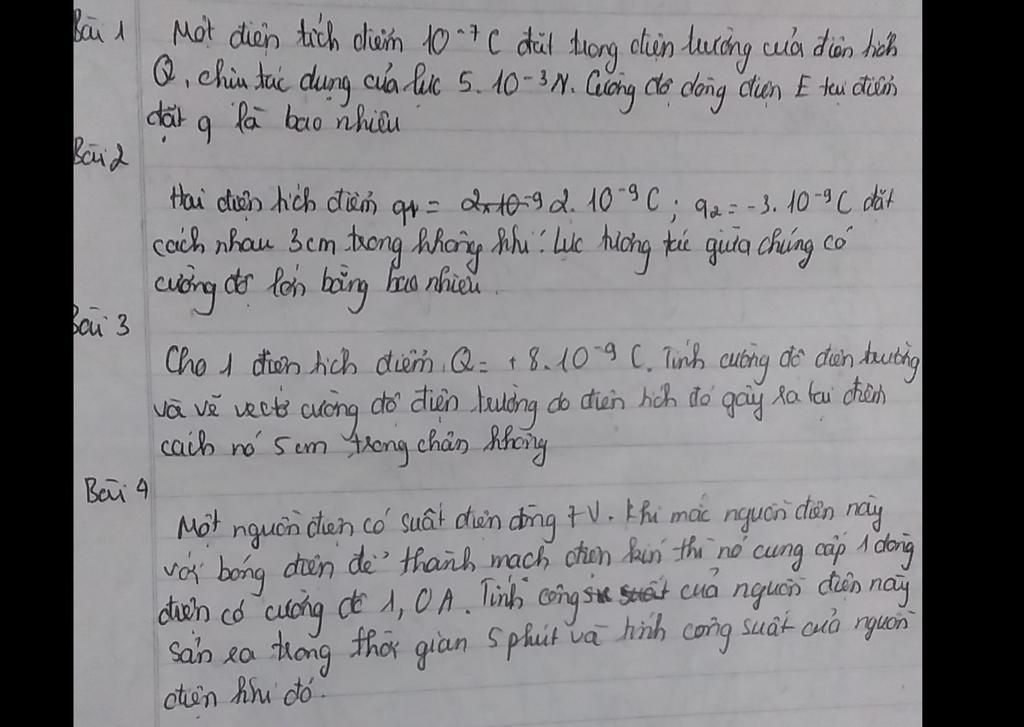 Bài 1 Một điện tích điểm 10⁻⁷ C đặt trong điện trường của điện tích
Q, chịu tác dụng của lực 5. 10⁻³N. Cường độ dòng điện E tại điểm
đặt q là bao nhiêu
Bài 2
Hai điện tích điểm q₁ = 2. 10⁻⁹ C ; q₂ = -3. 10⁻⁹ C đặt
cách nhau 3cm trong không khí. Lực tương tác giữa chúng có
cường độ lớn bằng bao nhiêu.
Bài 3
Cho 1 điện tích điểm Q = +8. 10⁻⁹ C. Tính cường độ điện trường
và vẽ vectơ cường độ điện trường do điện tích đó gây ra tại điểm
cách nó 5cm trong chân không
Bài 4
Một nguồn điện có suất điện động 7V. Khi mắc nguồn điện này
với bóng điện để thành mạch điện kín thì nó cung cấp 1 dòng
điện có cường độ 1,0A. Tính công của nguồn điện này
sản ra trong thời gian 5 phút và tính công suất của nguồn
điện khi đó.